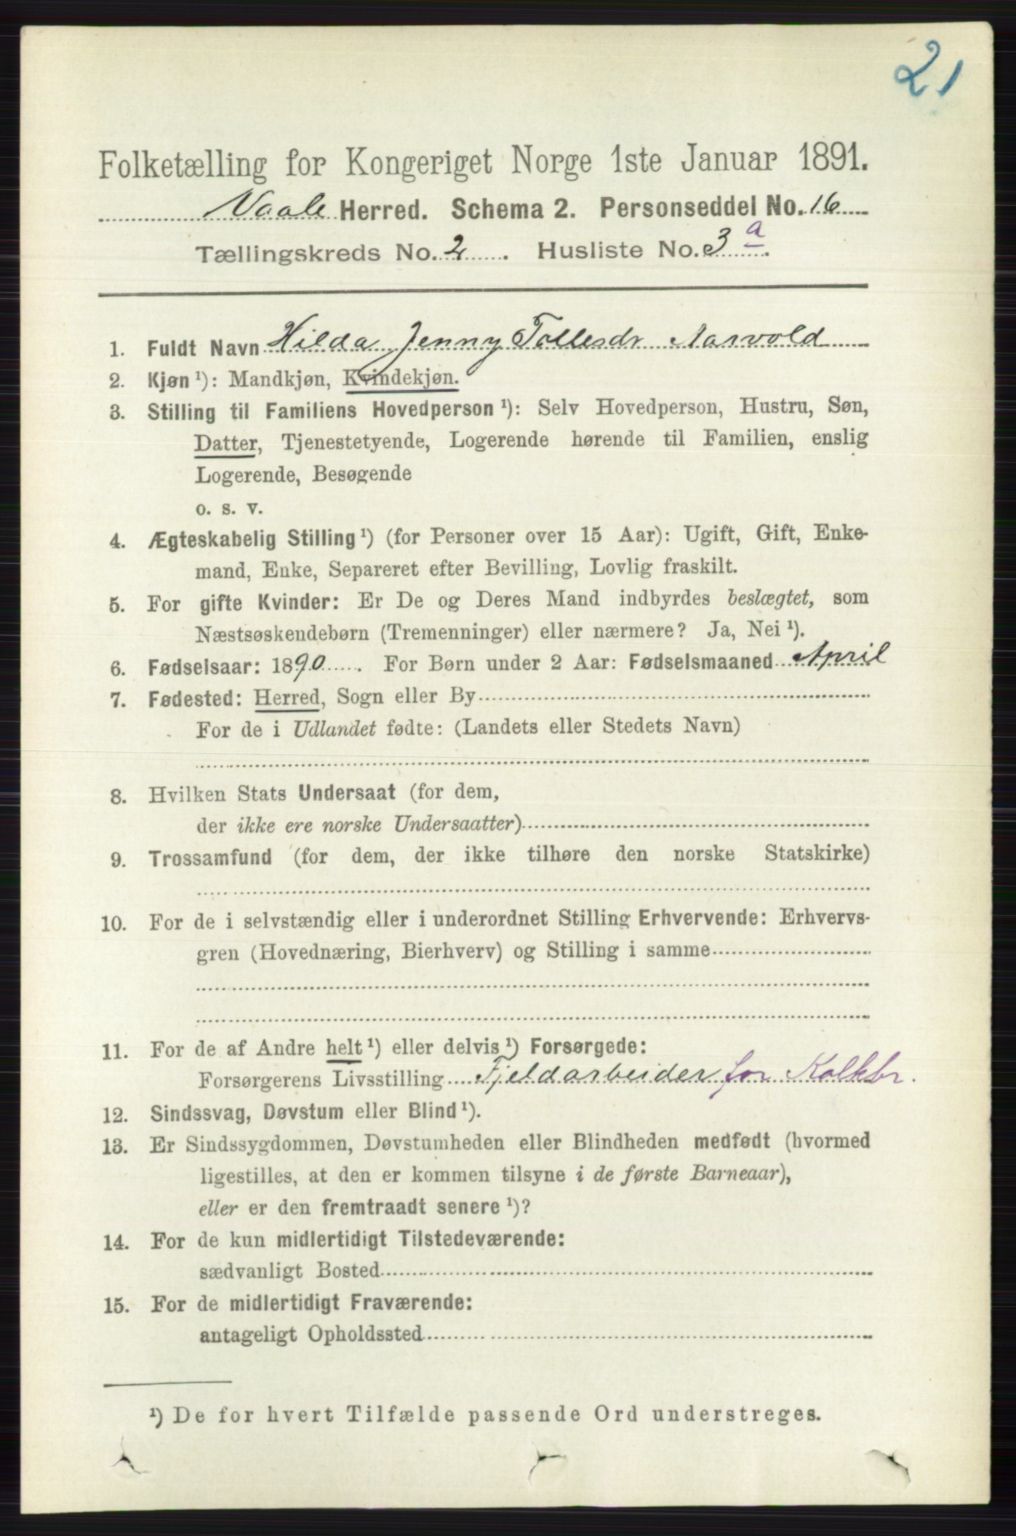 21
Folketælling for Kongeriget Norge 1ste Januar 1891.
Vaale Herred. Schema 2. Personseddel No. 16
Tællingskreds No. 2. Husliste No. 3 a.
1. Fuldt Navn Hilda Jenny Tollesdr Aasvold
2. Kjøn ¹): Mandkjøn, Kvindekjøn.
3. Stilling til Familiens Hovedperson ¹): Selv Hovedperson, Hustru, Søn,
Datter, Tjenestetyende, Logerende hørende til Familien, enslig
Logerende, Besøgende
o. s. v.
4. Ægteskabelig Stilling ¹) (for Personer over 15 Aar): Ugift, Gift, Enke-
mand, Enke, Separeret efter Bevilling, Lovlig fraskilt.
5. For gifte Kvinder: Er De og Deres Mand indbyrdes beslægtet, som
Næstsøskendebørn (Tremenninger) eller nærmere? Ja, Nei ¹).
6. Fødselsaar: 1890. For Børn under 2 Aar: Fødselsmaaned April
7. Fødested: Herred, Sogn eller By
For de i Udlandet fødte: (Landets eller Stedets Navn)
8. Hvilken Stats Undersaat (for dem,
der ikke ere norske Undersaatter)
9. Trossamfund (for dem, der ikke tilhøre den norske Statskirke)
10. For de i selvstændig eller i underordnet Stilling Erhvervende: Erhvervs-
gren (Hovednæring, Bierhverv) og Stilling i samme
11. For de af Andre helt ¹) eller delvis ¹) Forsørgede:
Forsørgerens Livsstilling Fjeldarbeider for Kalkbr.
12. Sindssvag, Døvstum eller Blind ¹).
13. Er Sindssygdommen, Døvstumheden eller Blindheden medfødt (hvormed
ligestilles, at den er kommen tilsyne i de første Barneaar),
eller er den fremtraadt senere ¹)?
14. For de kun midlertidigt Tilstedeværende:
sædvanligt Bosted
15. For de midlertidigt Fraværende:
antageligt Opholdssted
¹) De for hvert Tilfælde passende Ord understreges.